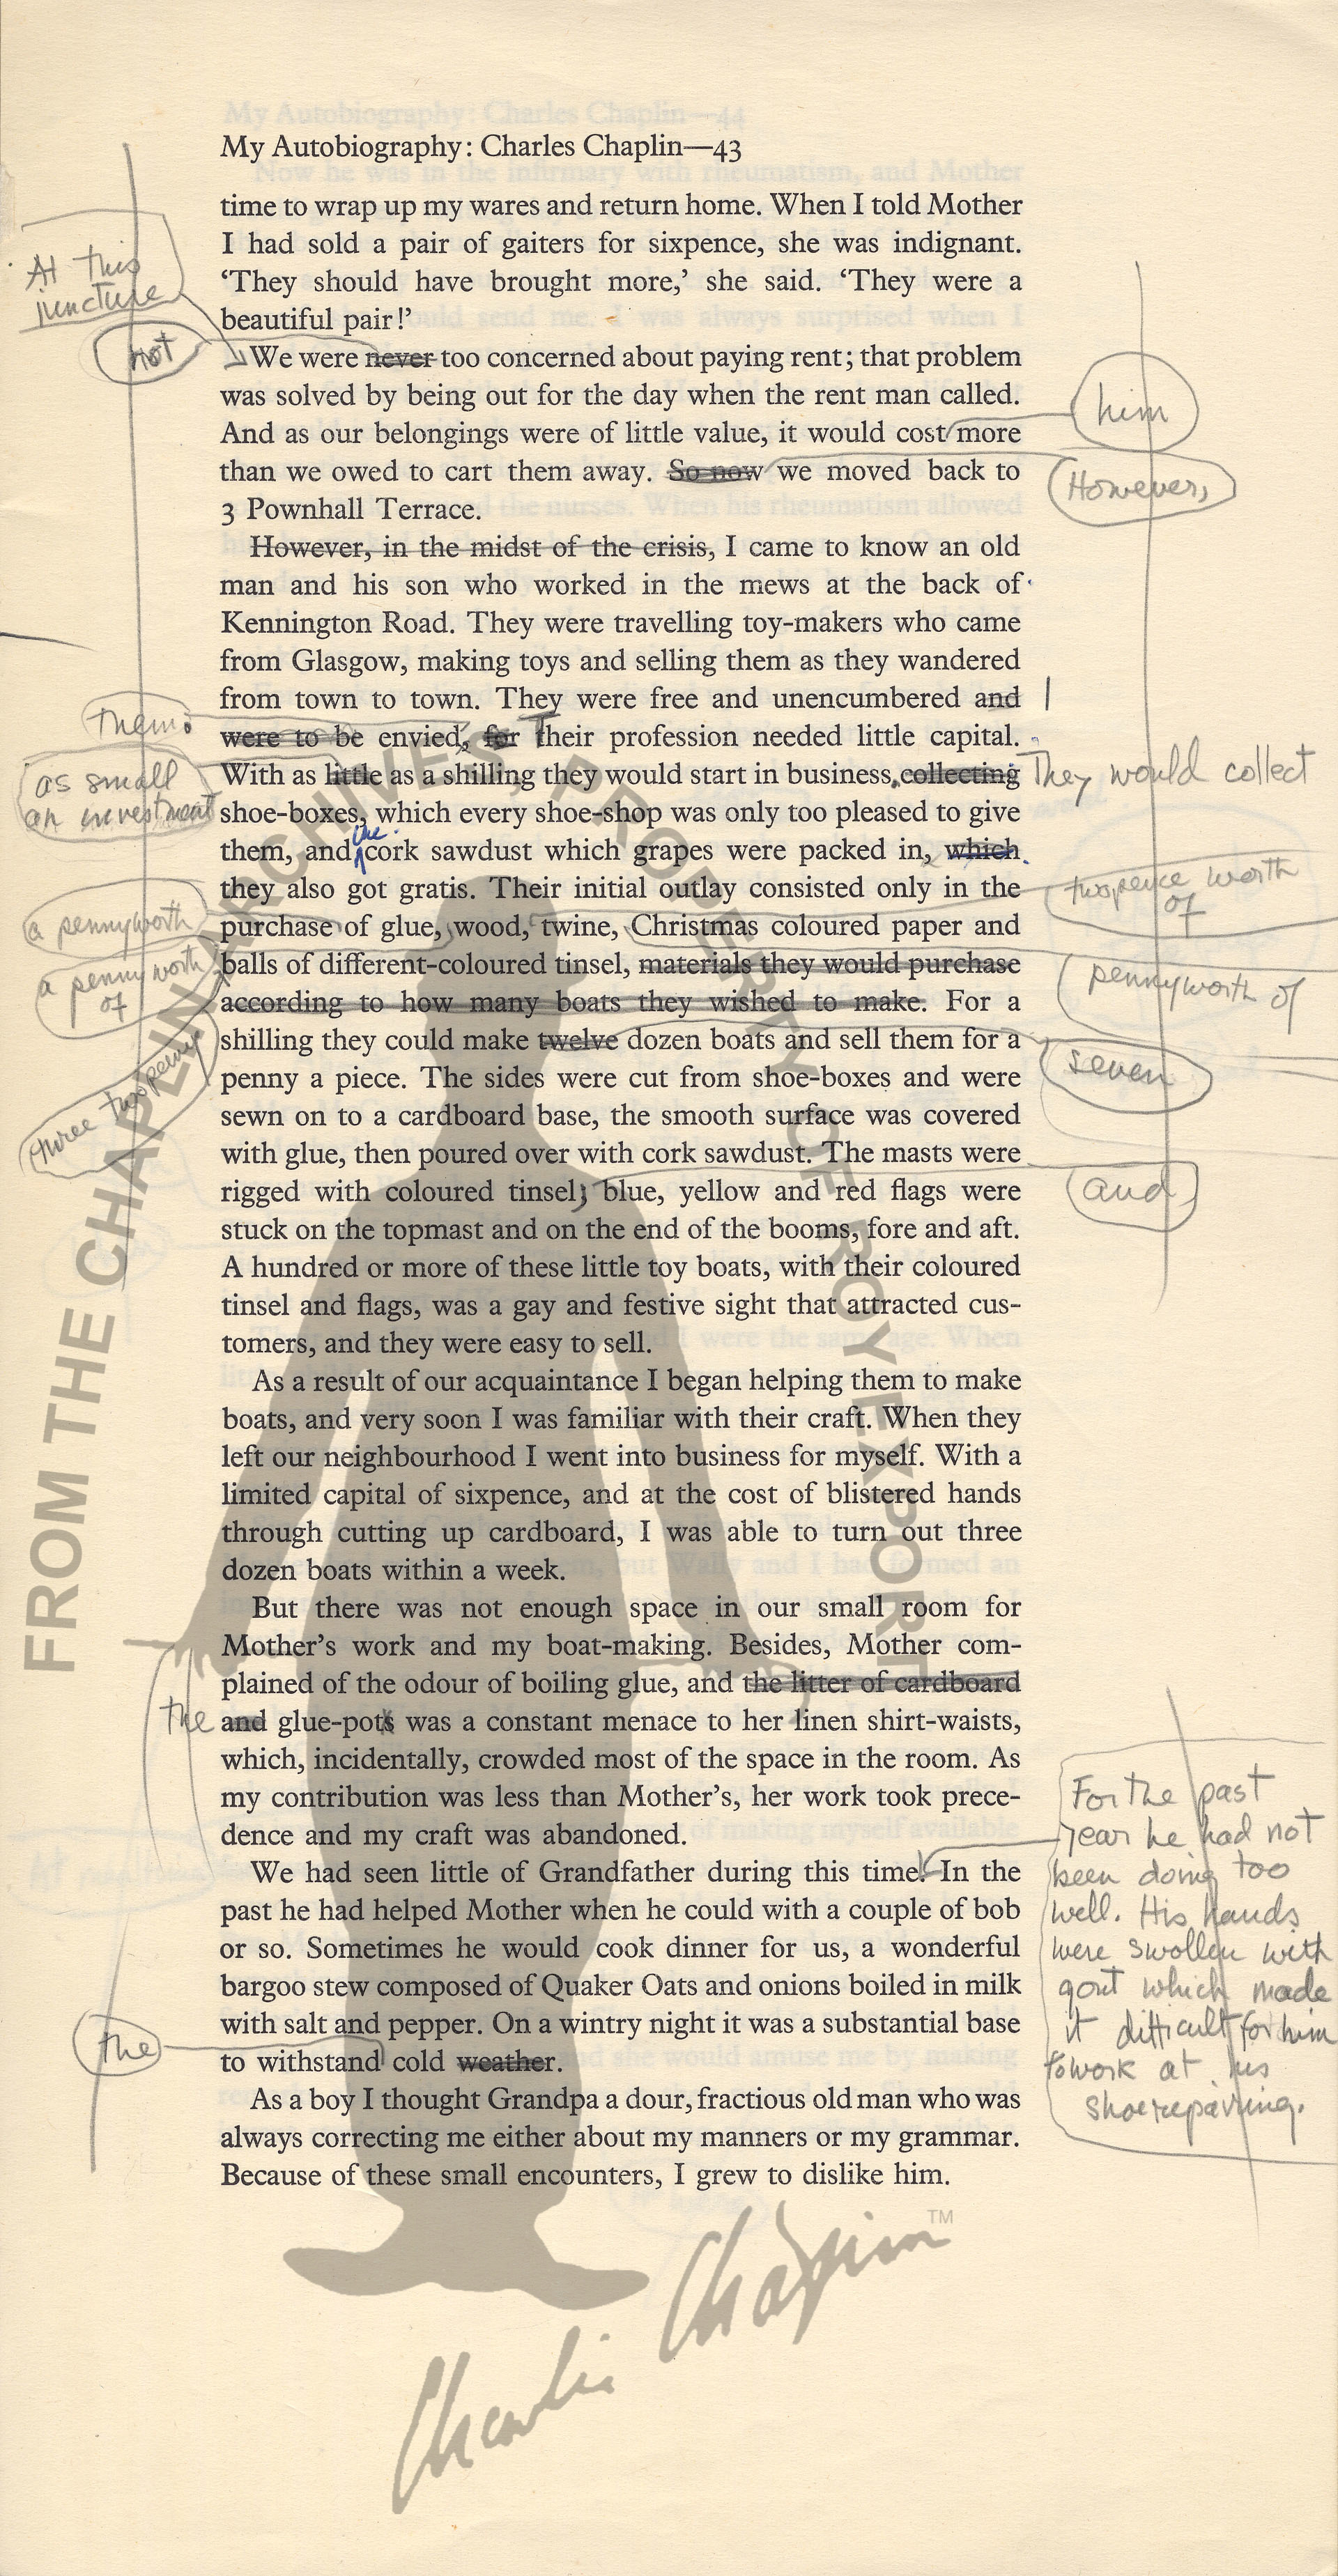 My Autobiography: Charles Chaplin—44
My Autobiography: Charles Chaplin—43
time to wrap up my wares and return home. When I told Mother
I had sold a pair of gaiters for sixpence, she was indignant.
‘They should have brought more,’ she said. ‘They were a
beautiful pair!’
At this
juncture
not
We were never too concerned about paying rent; that problem
was solved by being out for the day when the rent man called.
him
And as our belongings were of little value, it would cost more
than we owed to cart them away. So now we moved back to
However,
3 Pownhall Terrace.
However, in the midst of the crisis, I came to know an old
man and his son who worked in the mews at the back of
Kennington Road. They were travelling toy-makers who came
from Glasgow, making toys and selling them as they wandered
from town to town. They were free and unencumbered and
them.
were to be envied, for Their profession needed little capital.
as small
an investment
With as little as a shilling they would start in business, collecting They would collect
shoe-boxes, which every shoe-shop was only too pleased to give
the
them, and cork sawdust which grapes were packed in, which
they also got gratis. Their initial outlay consisted only in the
twopence worth
of
a pennyworth
purchase of glue, wood, twine, Christmas coloured paper and
a pennyworth
of
balls of different-coloured tinsel, materials they would purchase
pennyworth of
according to how many boats they wished to make. For a
three twopenny
shilling they could make twelve dozen boats and sell them for a
seven
penny a piece. The sides were cut from shoe-boxes and were
sewn on to a cardboard base, the smooth surface was covered
with glue, then poured over with cork sawdust. The masts were
and
rigged with coloured tinsel; blue, yellow and red flags were
stuck on the topmast and on the end of the booms, fore and aft.
A hundred or more of these little toy boats, with their coloured
tinsel and flags, was a gay and festive sight that attracted cus-
tomers, and they were easy to sell.
As a result of our acquaintance I began helping them to make
boats, and very soon I was familiar with their craft. When they
left our neighbourhood I went into business for myself. With a
limited capital of sixpence, and at the cost of blistered hands
through cutting up cardboard, I was able to turn out three
dozen boats within a week.
But there was not enough space in our small room for
Mother’s work and my boat-making. Besides, Mother com-
plained of the odour of boiling glue, and the litter of cardboard
the and glue-pots was a constant menace to her linen shirt-waists,
which, incidentally, crowded most of the space in the room. As
my contribution was less than Mother’s, her work took prece-
dence and my craft was abandoned.
For the past
year he had not
been doing too
well. His hands
were swollen with
gout which made
it difficult for him
to work at his
shoerepairing.
We had seen little of Grandfather during this time. In the
past he had helped Mother when he could with a couple of bob
or so. Sometimes he would cook dinner for us, a wonderful
bargoo stew composed of Quaker Oats and onions boiled in milk
with salt and pepper. On a wintry night it was a substantial base
the
to withstand cold weather.
As a boy I thought Grandpa a dour, fractious old man who was
always correcting me either about my manners or my grammar.
Because of these small encounters, I grew to dislike him.
FROM THE CHAPLIN ARCHIVES, PROPERTY OF ROY EXPORT
Charlie Chaplin™